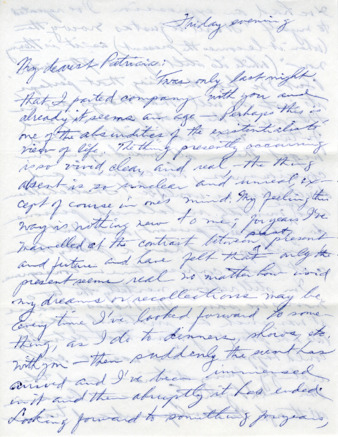 Friday evening
My dearest Patricia:
'Twas only last night
that I parted company with you and
already it seems an age — Perhaps this is
one of the absurdities of the existentialists'
view of life. The thing presently occurring
is so vivid, clear, and real — the thing
absent is so unclear and unreal ex-
cept of course in one's mind. My feeling this
way is nothing new to me; for years I've
marvelled at the contrast between past, present
and future and have felt that only the
present seems real no matter how vivid
my dreams or recollections may be.
Every time I've looked forward to some
thing, as I do to dinners, shows etc.
with you — then suddenly the event has
arrived and I've been immersed
in it and then abruptly it has ended.
Looking forward to something for years,